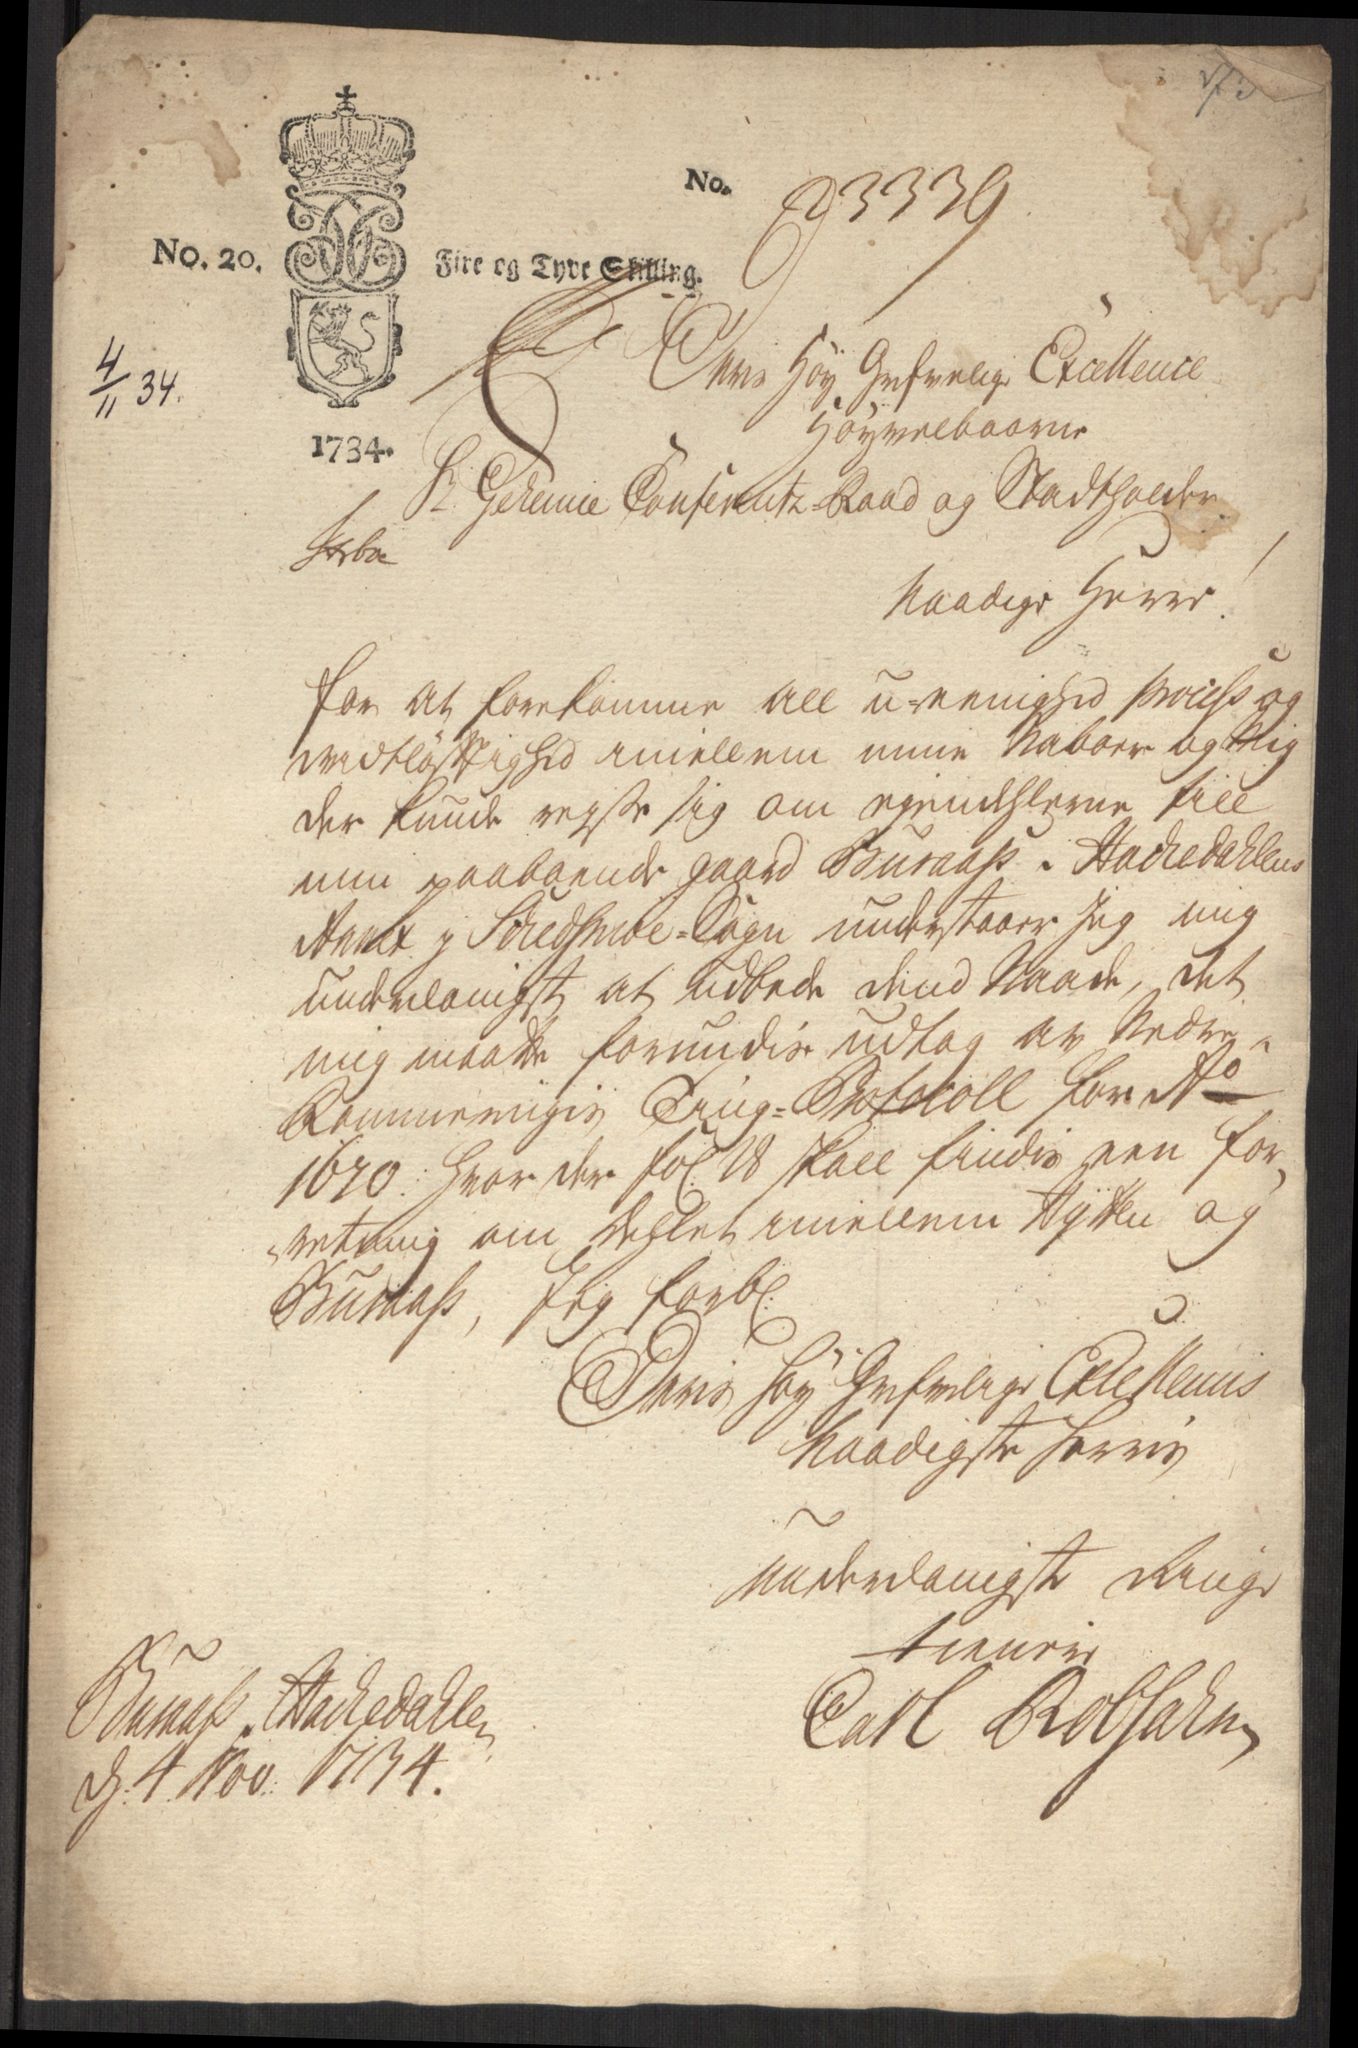 No. 23339
No. 20. Fire og Tyve Skilling.
4/11 34.
1734.
Deris Høy Grefvelige Excellence
Høyvelbaarne
Hr. Geheime Conferentz-Raad og Stadtholder
Naadige Herre!
For at forekomme all u-eenighed process og
vidtløftighed imellem mine Naboer og Mig
der kunde reyse sig om ejendehlerne till
min paaboende gaard Buraass i Hackedahlens
Annex j Schedsmoe-Sogn understaaer Jeg mig
underdanigst at udbede dend Naade, det
mig maatte forundis udtog av Nedre-
Rommerigis Ting-Protocoll for Ao
1670: hvor der fol: 18 skall findis een for-
retning om dehlet imellem Hytten og
Buraass, Jeg forbl:
Deris Høy Grefvelige Excellencis
Naadigste Herris
underdanigste Ringe
tienere
Carl Robsahm
Buraass i Hackedahlen
d: 4 Nov: 1734.